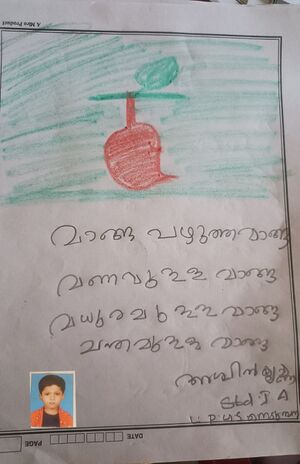 A Mira Product
മാങ്ങ പഴുത്തമാങ്ങ
മണമുള്ള മാങ്ങ
മധുരമുള്ള മാങ്ങ
ചന്തമുള്ള മാങ്ങ
അശ്വിൻ
Std I A
DATE
PAGE